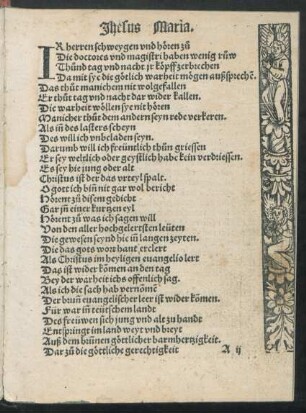 Jhesus Maria.
IR herren schweygen vnd hören zů
Die doctores vnd magistri haben wenig růw
Thůnd tag vnd nacht jr köpff zerbrechen
Da mit sy die götlich warheit mögen außsprechē.
Das thůt manichem nit wolgefallen
Er thůt tag vnd nacht dar wider kallen.
Die warheit wöllen sye nit hören
Manicher thůt dem andern seyn rede verkeren.
Als in des lasters scheyn
Des will ich vnbeladen seyn.
Darumb will ich freüntlich thůn griessen
Er sey weltlich oder geystlich habe kein verdriessen.
Es sey hie jung oder alt
Christus ist der das vrteyl spalt.
O gott ich bin nit gar wol bericht
Hörent zů disem gedicht
Gar in einer kurtzen eyl
Hörent zů was ich sagen will
Von den aller hochgelertsten leüten
Die gewesen synd hie in langen zeyten.
Die das gots wort hant erclert
Als Christus im heyligen euangelio lert
Das ist wider kömen an den tag
Bey der warheit ichs offenlich sag.
Als ich die sach hab vernomē
Der brun euangelischer leer ist wider kömen.
Für war in teütschem land
Des freüwen sich jung vnd alt zů handt
Entspringt im land weyt vnd breyt
Auß dem brünen götlicher barmhertzigkeit.
Dar zů die göttliche gerechtigkeit
A ij